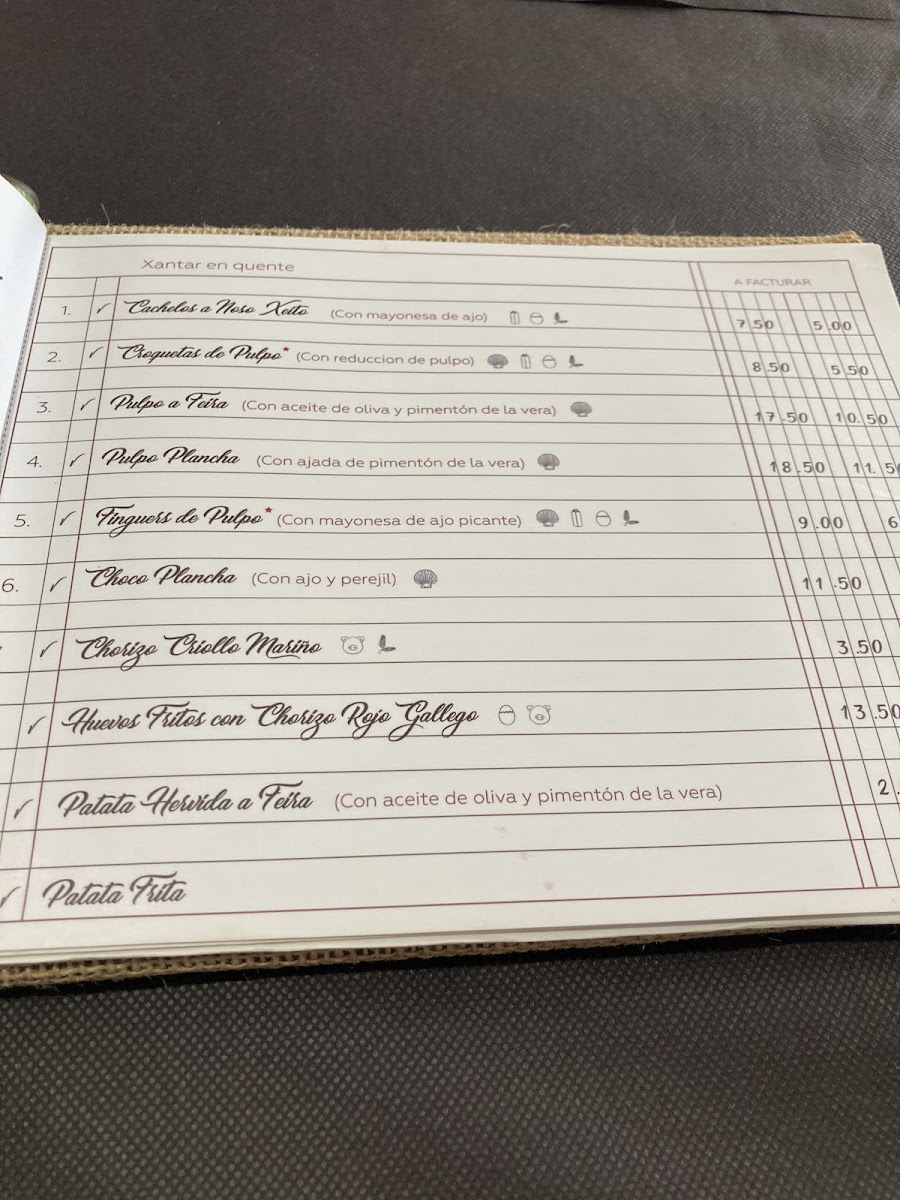 Xantar en quente A FACTURAR
1. Cachelos a Noso Xeito (Con mayonesa de ajo) 7.50 5.00
2. Croquetas de Pulpo* (Con reduccion de pulpo) 8.50 5.50
3. Pulpo a Feira (Con aceite de oliva y pimentón de la vera) 17.50 10.50
4. Pulpo Plancha (Con ajada de pimentón de la vera) 18.50 11.5
5. Finguers de Pulpo* (Con mayonesa de ajo picante) 9.00 6
6. Choco Plancha (Con ajo y perejil) 11.50
Chorizo Criollo Mariño 3.50
Huevos Fritos con Chorizo Rojo Gallego 13.50
Patata Hervida a Feira (Con aceite de oliva y pimentón de la vera) 2.
Patata Frita